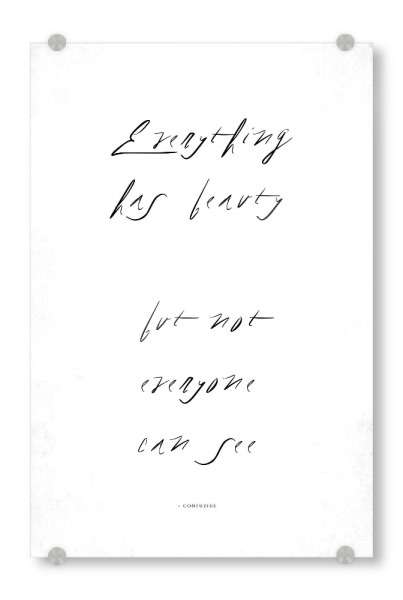 Everything
has beauty
but not
everyone
can see
- CONFUZIUS